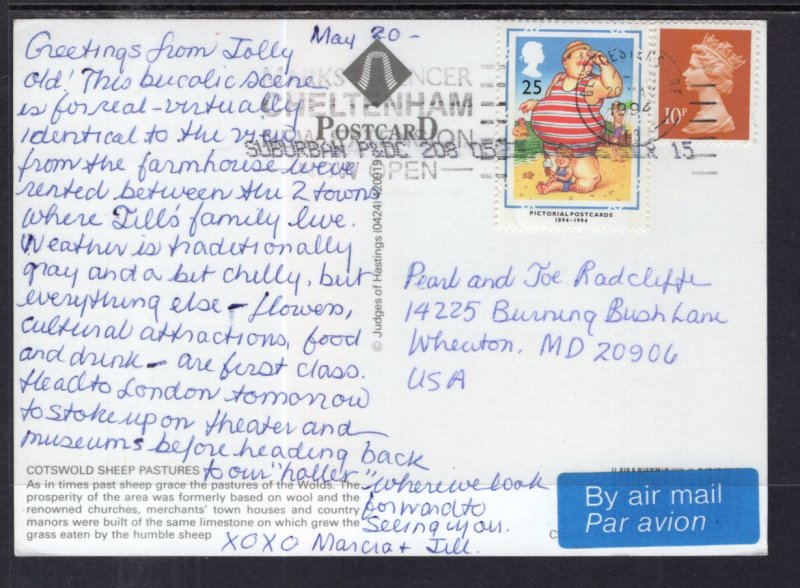 May 20 -
Greetings from Jolly
old! This bucolic scene
is for real - virtually
identical to the view
from the farmhouse we've
rented between the 2 towns
where Jill's family live.
Weather is traditionally
gray and a bit chilly, but
everything else - flowers,
cultural attractions, food
and drink - are first class.
Head to London tomorrow
to stoke up on theater and
museums before heading back
to our "haller" where we look
forward to
seeing you.
XOXO Marcia + Jill.
COTSWOLD SHEEP PASTURES
As in times past sheep grace the pastures of the Wolds. The
prosperity of the area was formerly based on wool and the
renowned churches, merchants' town houses and country
manors were built of the same limestone on which grew the
grass eaten by the humble sheep
POSTCARD
© Judges of Hastings (0424) 420919
CHELTENHAM
OPEN
SUBURBAN P&DC 208
15
25
PICTORIAL POSTCARDS
1894-1994
10P
1994
Pearl and Joe Radcliffe
14225 Burning Bush Lane
Wheaton, MD 20906
USA
By air mail
Par avion